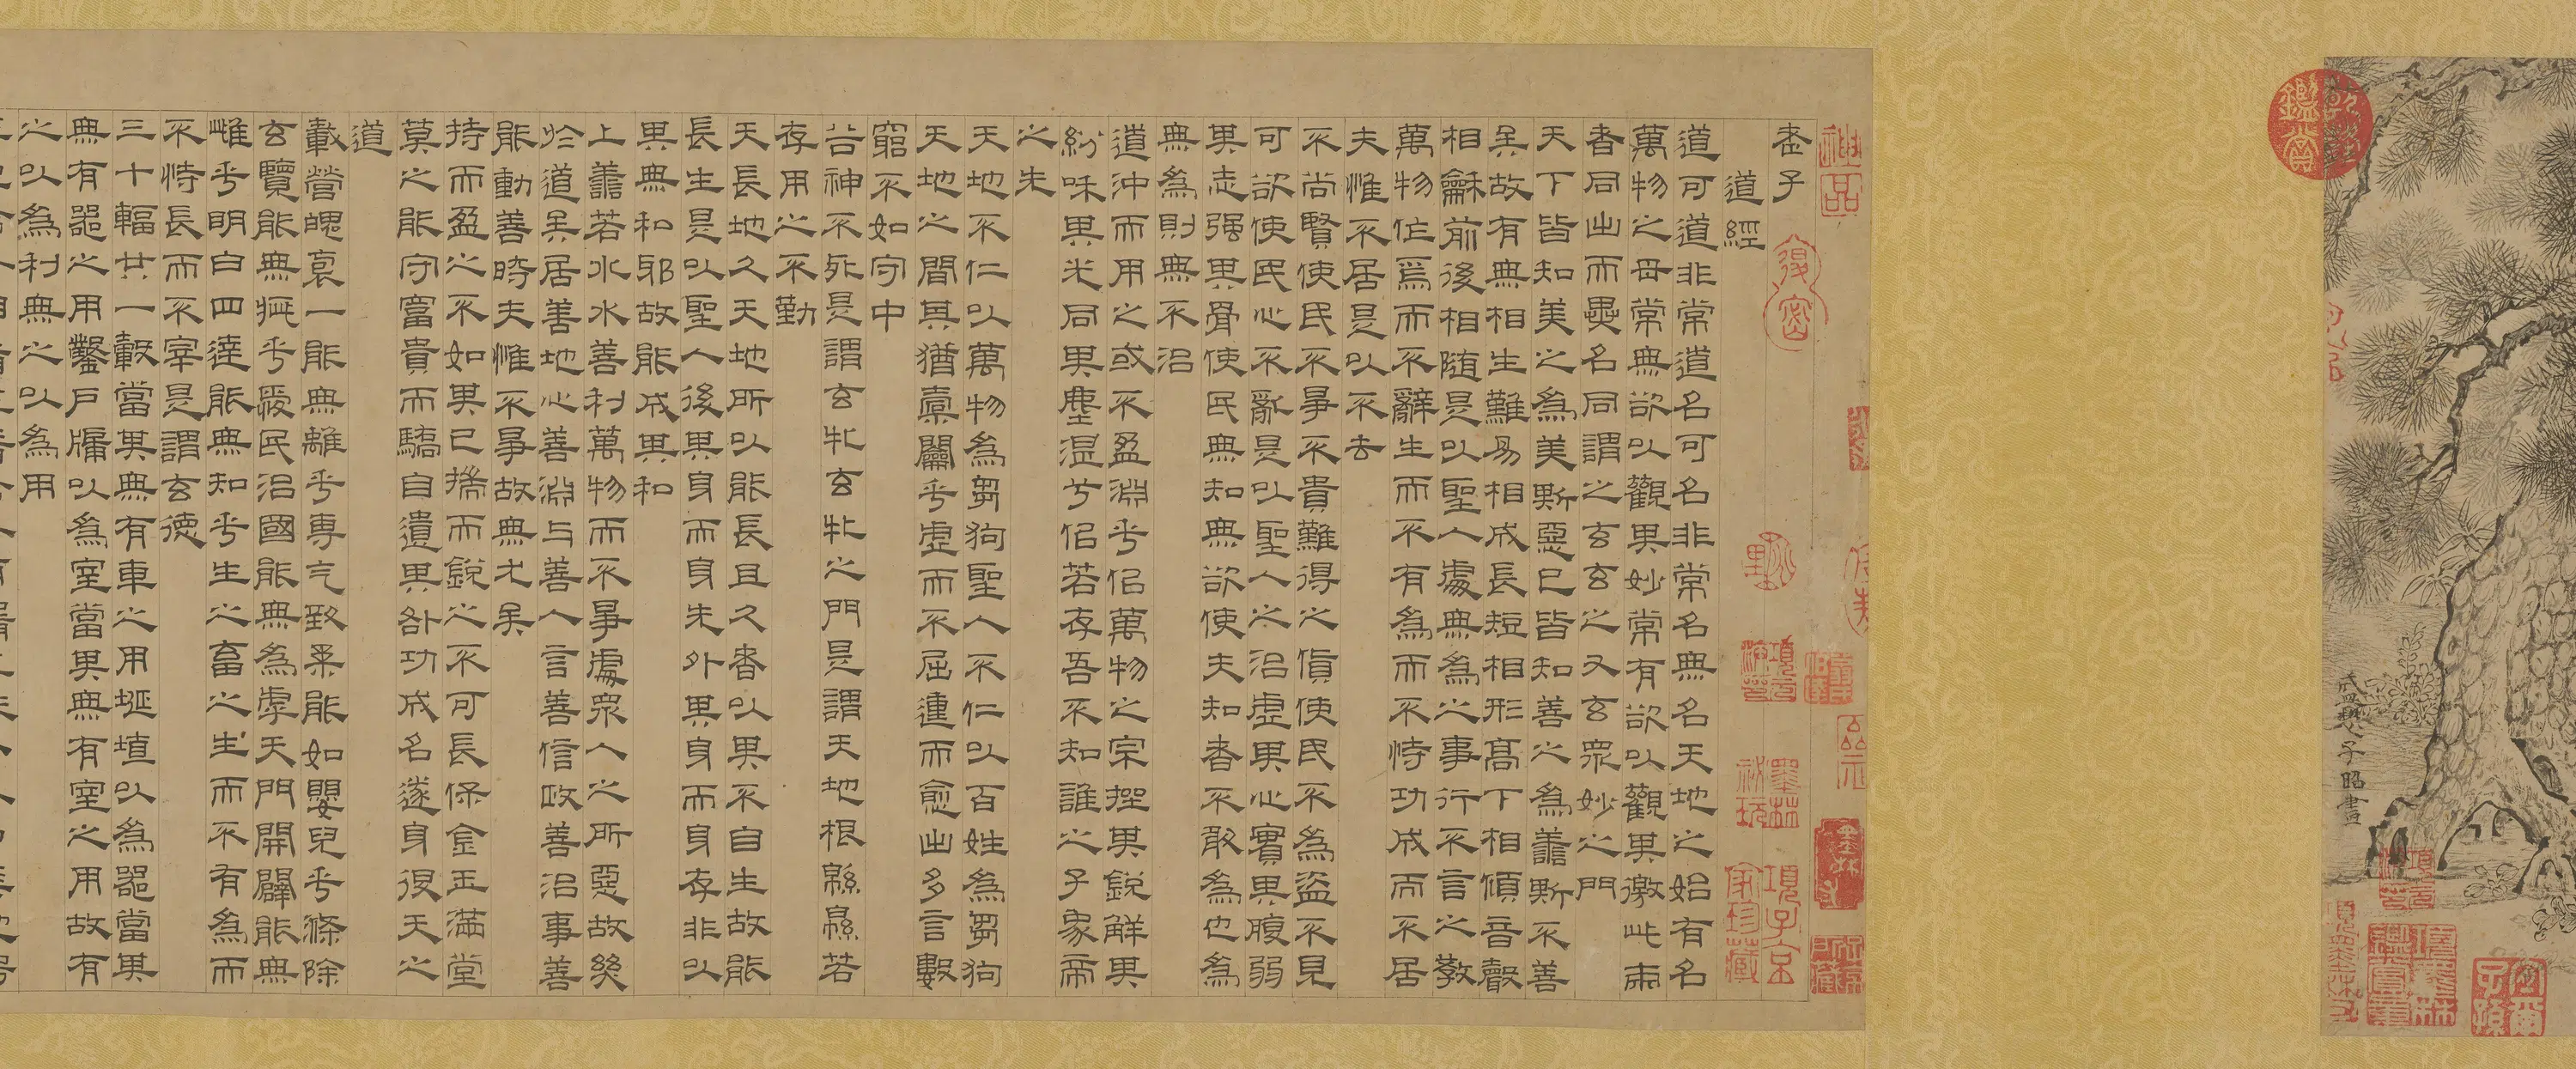 盛懋子昭畫
鑑賞
宜爾子孫
神品
老子
項子京家珍藏
道經
道可道非常道名可名非常名無名天地之始有名
萬物之母常無欲以觀其妙常有欲以觀其徼此兩
者同出而異名同謂之玄玄之又玄衆妙之門
天下皆知美之為美斯惡已皆知善之為善斯不善
矣故有無相生難易相成長短相形高下相傾音聲
相龢前後相隨是以聖人處無為之事行不言之教
萬物作焉而不辭生而不有為而不恃功成而不居
夫惟不居是以不去
不尚賢使民不爭不貴難得之貨使民不為盜不見
可欲使民心不亂是以聖人之治虛其心實其腹弱
其志强其骨使民無知無欲使夫知者不敢為也為
無為則無不治
道沖而用之或不盈淵乎佀萬物之宗挫其銳解其
紛咊其光同其塵湛兮佀若存吾不知誰之子象帝
之先
天地不仁以萬物為芻狗聖人不仁以百姓為芻狗
天地之間其猶橐籥乎虛而不屈運而愈出多言數
窮不如守中
谷神不死是謂玄牝玄牝之門是謂天地根緜緜若
存用之不勤
天長地久天地所以能長且久者以其不自生故能
長生是以聖人後其身而身先外其身而身存非以
其無私邪故能成其私
上善若水水善利萬物而不爭處衆人之所惡故幾
於道矣居善地心善淵与善人言善信政善治事善
能動善時夫惟不爭故無尤矣
持而盈之不如其已揣而銳之不可長保金玉滿堂
莫之能守富貴而驕自遺其咎功成名遂身退天之
道
載營魄裒一能無離乎專气致柔能如嬰兒乎滌除
玄覽能無疵乎愛民治國能無為乎天門開闢能無
雌乎明白四達能無知乎生之畜之生而不有為而
不恃長而不宰是謂玄德
三十輻共一轂當其無有車之用埏埴以為器當其
無有器之用鑿戶牖以為室當其無有室之用故有
之以為利無之以為用